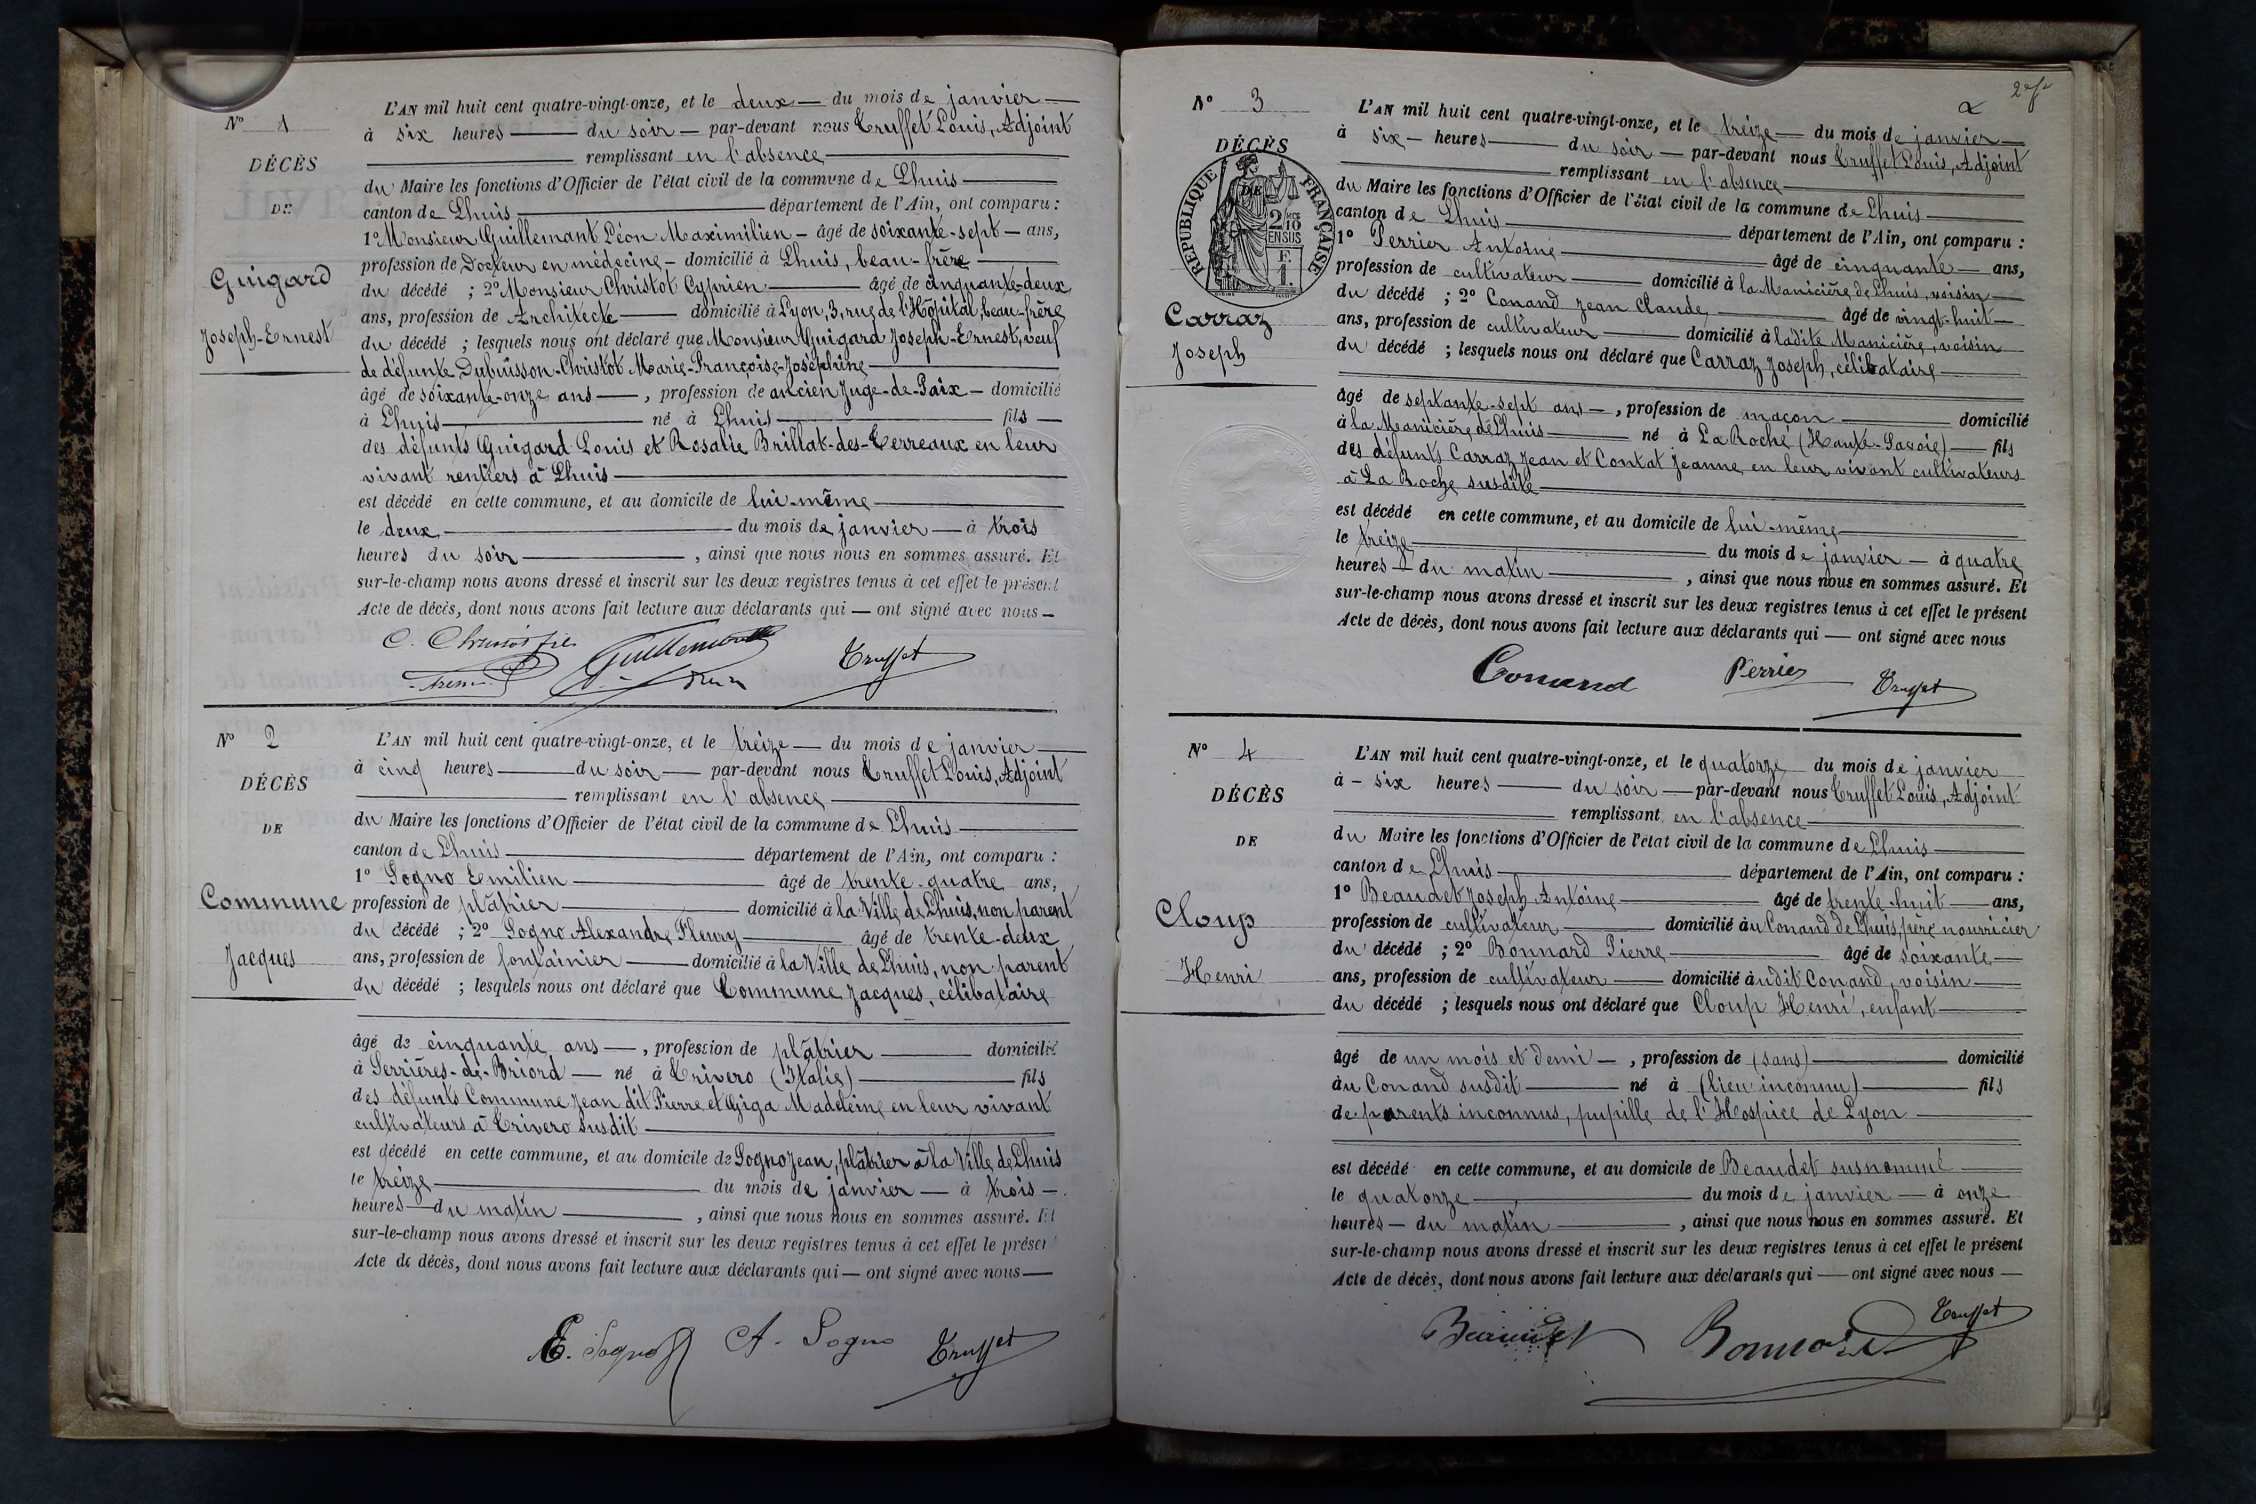 N° 1
DÉCÈS
DE
Guigard
Joseph-Ernest
L'AN mil huit cent quatre-vingt-onze, et le deux du mois de janvier
à six heures du soir par-devant nous Truffet Louis, Adjoint
remplissant en l'absence
du Maire les fonctions d'Officier de l'état civil de la commune de Lhuis
canton de Lhuis département de l'Ain, ont comparu :
1° Monsieur Guillemant Léon Maximilien âgé de soixante-sept ans,
profession de Docteur en médecine domicilié à Lhuis, beau-frère
du décédé ; 2° Monsieur Christot Cyprien âgé de cinquante-deux
ans, profession de Architecte domicilié à Lyon, 3, rue de l'Hôpital, beau-frère
du décédé ; lesquels nous ont déclaré que Monsieur Guigard Joseph-Ernest, veuf
de défunte Dubuisson-Christot Marie-Françoise-Joséphine
âgé de soixante-onze ans, profession de ancien Juge-de-Paix domicilié
à Lhuis né à Lhuis fils
des défunts Guigard Louis et Rosalie Brillat-des-Terreaux en leur
vivant rentiers à Lhuis
est décédé en cette commune, et au domicile de lui-même
le deux du mois de janvier à trois
heures du soir, ainsi que nous nous en sommes assuré. Et
sur-le-champ nous avons dressé et inscrit sur les deux registres tenus à cet effet le présent
Acte de décès, dont nous avons fait lecture aux déclarants qui ont signé avec nous
Guillemant Truffet
N° 2
DÉCÈS
DE
Commune
Jacques
L'AN mil huit cent quatre-vingt-onze, et le treize du mois de janvier
à cinq heures du soir par-devant nous Truffet Louis, Adjoint
remplissant en l'absence
du Maire les fonctions d'Officier de l'état civil de la commune de Lhuis
canton de Lhuis département de l'Ain, ont comparu :
1° Sogno Emilien âgé de trente-quatre ans,
profession de plâtrier domicilié à la Ville de Lhuis, non parent
du décédé ; 2° Sogno Alexandre Fleury âgé de trente-deux
ans, profession de fontainier domicilié à la Ville de Lhuis, non parent
du décédé ; lesquels nous ont déclaré que Commune Jacques, célibataire
âgé de cinquante ans, profession de plâtrier domicilié
à Serrières-de-Briord né à Trivero (Italie) fils
des défunts Commune Jean dit Pierre et Giga Madeleine en leur vivant
cultivateurs à Trivero susdit
est décédé en cette commune, et au domicile de Sogno Jean, plâtrier à la Ville de Lhuis
le treize du mois de janvier à trois
heures du matin, ainsi que nous nous en sommes assuré. Et
sur-le-champ nous avons dressé et inscrit sur les deux registres tenus à cet effet le présent
Acte de décès, dont nous avons fait lecture aux déclarants qui ont signé avec nous
E. Sogno A. Sogno Truffet
2
N° 3
DÉCÈS
DE
RÉPUBLIQUE FRANÇAISE
2/10
EN SUS
F.
1.
Carraz
Joseph
L'AN mil huit cent quatre-vingt-onze, et le treize du mois de janvier
à six heures du soir par-devant nous Truffet Louis, Adjoint
remplissant en l'absence
du Maire les fonctions d'Officier de l'état civil de la commune de Lhuis
canton de Lhuis département de l'Ain, ont comparu :
1° Perrier Antoine âgé de cinquante ans,
profession de cultivateur domicilié à la Manicière de Lhuis, voisin
du décédé ; 2° Conand Jean Claude âgé de vingt-huit
ans, profession de cultivateur domicilié à ladite Manicière, voisin
du décédé ; lesquels nous ont déclaré que Carraz Joseph, célibataire
âgé de septante-sept ans, profession de maçon domicilié
à la Manicière de Lhuis né à La Roche (Haute-Savoie) fils
des défunts Carraz Jean et Contat Jeanne en leur vivant cultivateurs
à La Roche susdite
est décédé en cette commune, et au domicile de lui-même
le treize du mois de janvier à quatre
heures du matin, ainsi que nous nous en sommes assuré. Et
sur-le-champ nous avons dressé et inscrit sur les deux registres tenus à cet effet le présent
Acte de décès, dont nous avons fait lecture aux déclarants qui ont signé avec nous
Conand Perrier Truffet
N° 4
DÉCÈS
DE
Cloup
Henri
L'AN mil huit cent quatre-vingt-onze, et le quatorze du mois de janvier
à six heures du soir par-devant nous Truffet Louis, Adjoint
remplissant en l'absence
du Maire les fonctions d'Officier de l'état civil de la commune de Lhuis
canton de Lhuis département de l'Ain, ont comparu :
1° Beaudet Joseph Antoine âgé de trente-huit ans,
profession de cultivateur domicilié au Conand de Lhuis, père nourricier
du décédé ; 2° Bonnard Pierre âgé de soixante
ans, profession de cultivateur domicilié audit Conand, voisin
du décédé ; lesquels nous ont déclaré que Cloup Henri, enfant
âgé de un mois et demi, profession de (sans) domicilié
au Conand susdit né à (lieu inconnu) fils
de parents inconnus, pupille de l'Hospice de Lyon
est décédé en cette commune, et au domicile de Beaudet susnommé
le quatorze du mois de janvier à onze
heures du matin, ainsi que nous nous en sommes assuré. Et
sur-le-champ nous avons dressé et inscrit sur les deux registres tenus à cet effet le présent
Acte de décès, dont nous avons fait lecture aux déclarants qui ont signé avec nous
Beaudet Bonnard Truffet